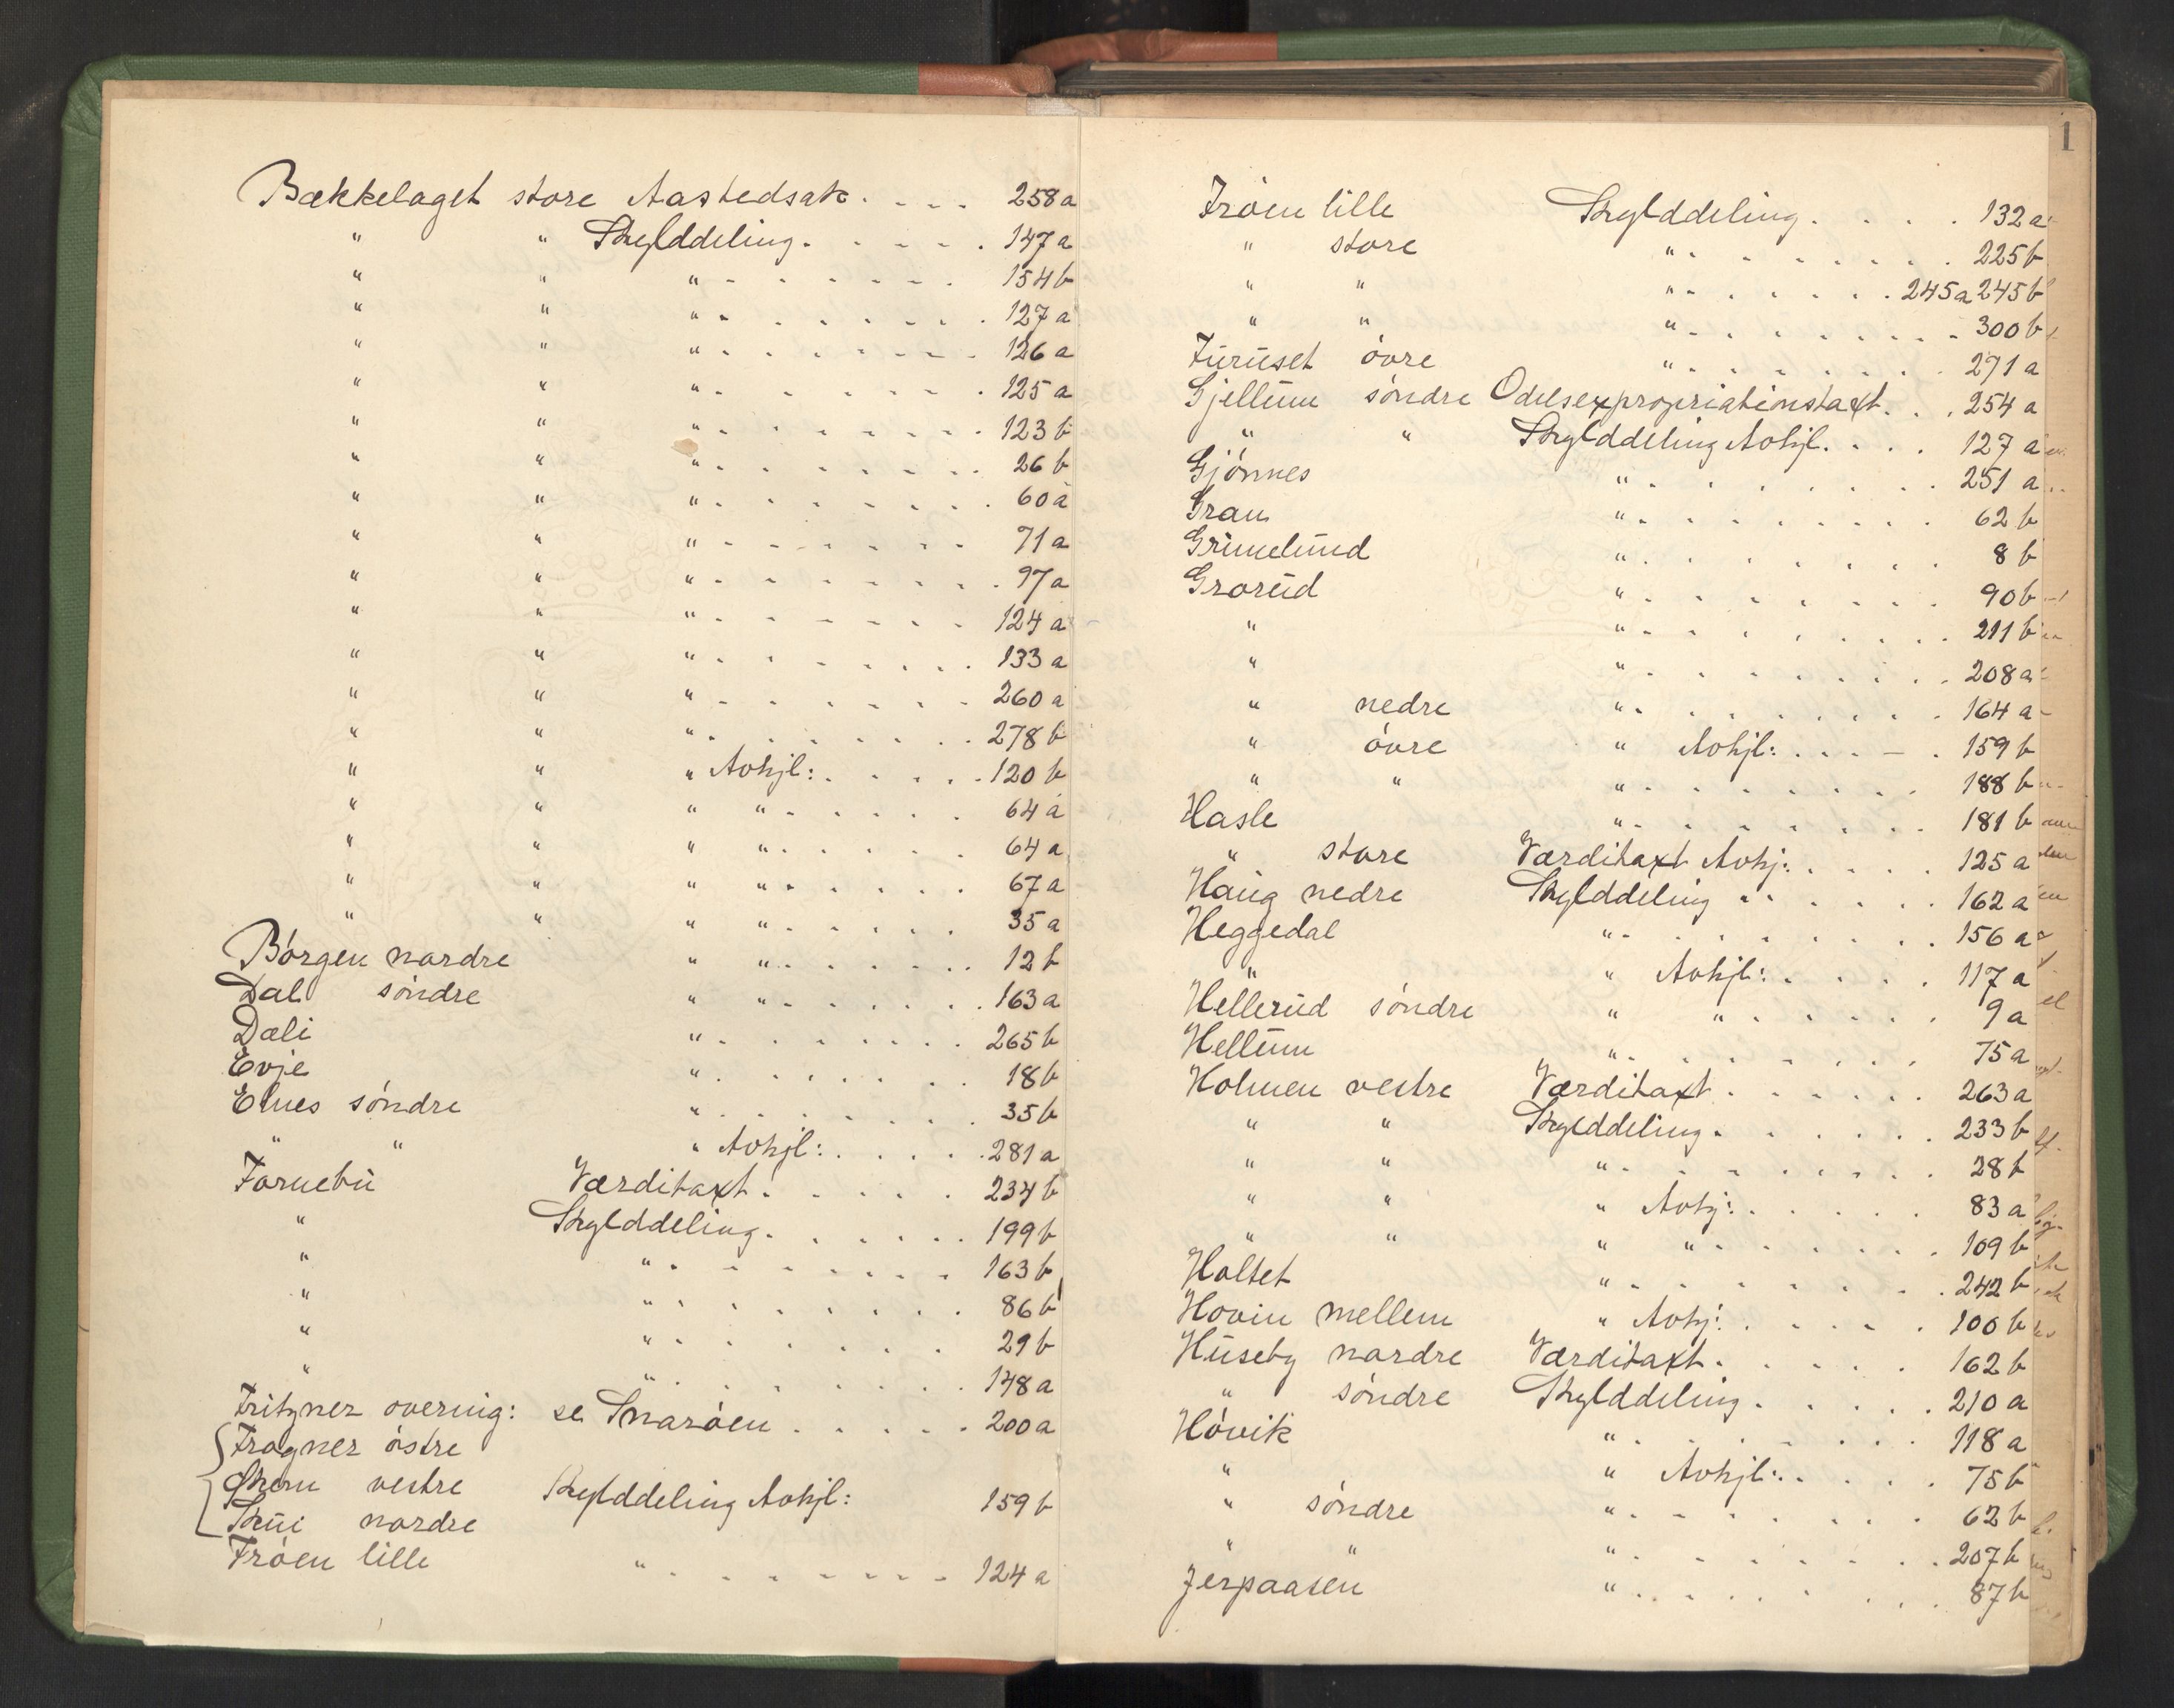 Bækkelaget store Aastedsak . . . . 258a
" " Skylddeling . . . . . 147a
" " " . . . . . . 154b
" " " . . . . . . . 127a
" " " . . . . . . . 126a
" " " . . . . . . . 125a
" " " . . . . . . . 123b
" " " . . . . . . . 26b
" " " . . . . . . . 60a
" " " . . . . . . . 71a
" " " . . . . . . . 97a
" " " . . . . . . . 124a
" " " . . . . . . . 133a
" " " . . . . . . . 260a
" " " . . . . . . . 278b
" " " Avhjl: . . . . . 120b
" " " " . . . . . 64a
" " " " . . . . . 64a
" " " " . . . . . 67a
" " " " . . . . . 35a
Børgen nordre " " . . . . . . 12b
Dal søndre " " . . . . . . 163a
Dæli " . . . . . . . 265b
Evje " . . . . . . . 18b
Elnes søndre " . . . . . . . 35b
" " " Avhjl: . . . . . 281a
Fornebu Værditaxt . . . . . 234b
" Skylddeling . . . . . . 199b
" " . . . . . . . 163b
" " . . . . . . . 86b
" " . . . . . . . 29b
" " . . . . . . . 148a
Fritzner overenig: se Snarøen . . . . . 200a
Frogner østre
Skom vestre Skylddeling Avhjl: 159b
Skui nordre
Frøen lille " . . . . . . . . 124a
1
Frøen lille Skylddeling . . . . 132a
" store " . . . . . . . 225b
" " " . . . . . . 245a 245b
" " " . . . . . . . 300b
Furuset øvre " . . . . . . . 271a
Gjellum søndre Odelsexpropriationstaxt . . . 254a
" " Skylddeling Avhjl. . . . 127a
Gjønnes " . . . . . . . 251a
Gran " . . . . . . . 62b
Grimelund " . . . . . . . 8b
Grorud " . . . . . . . 90b
" " . . . . . . . 211b
" " . . . . . . . 208a
" nedre " . . . . . . . 164a
" øvre " Avhjl: . . . - . 159b
" " " . . . . . . . 188b
Hasle " . . . . . . . 181b
" store Værditaxt Avhj: . . . . 125a
Haug nedre Skylddeling . . . . . . 162a
Heggedal " . . . . . . . 156a
" " Avhjl: . . . . 117a
Hellerud søndre " " . . . . . . 9a
Hellum " . . . . . . . 75a
Holmen vestre Værditaxt . . . . . . 263a
" " Skylddeling . . . . . . 233b
" " " . . . . . . . 28b
" " " Avhj: . . . . . 83a
" " " " . . . . . . 109b
Holtet " . . . . . . . 242b
Hovin mellem " Avhj: . . . . . 100b
Huseby nordre Værditaxt . . . . . 162b
" søndre Skylddeling . . . . . 210a
Høvik " . . . . . . . 118a
" " Avhjl: . . . . 75b
" søndre " . . . . . . . 62b
" " " . . . . . . . 207b
Jerpaasen " . . . . . . . 87b